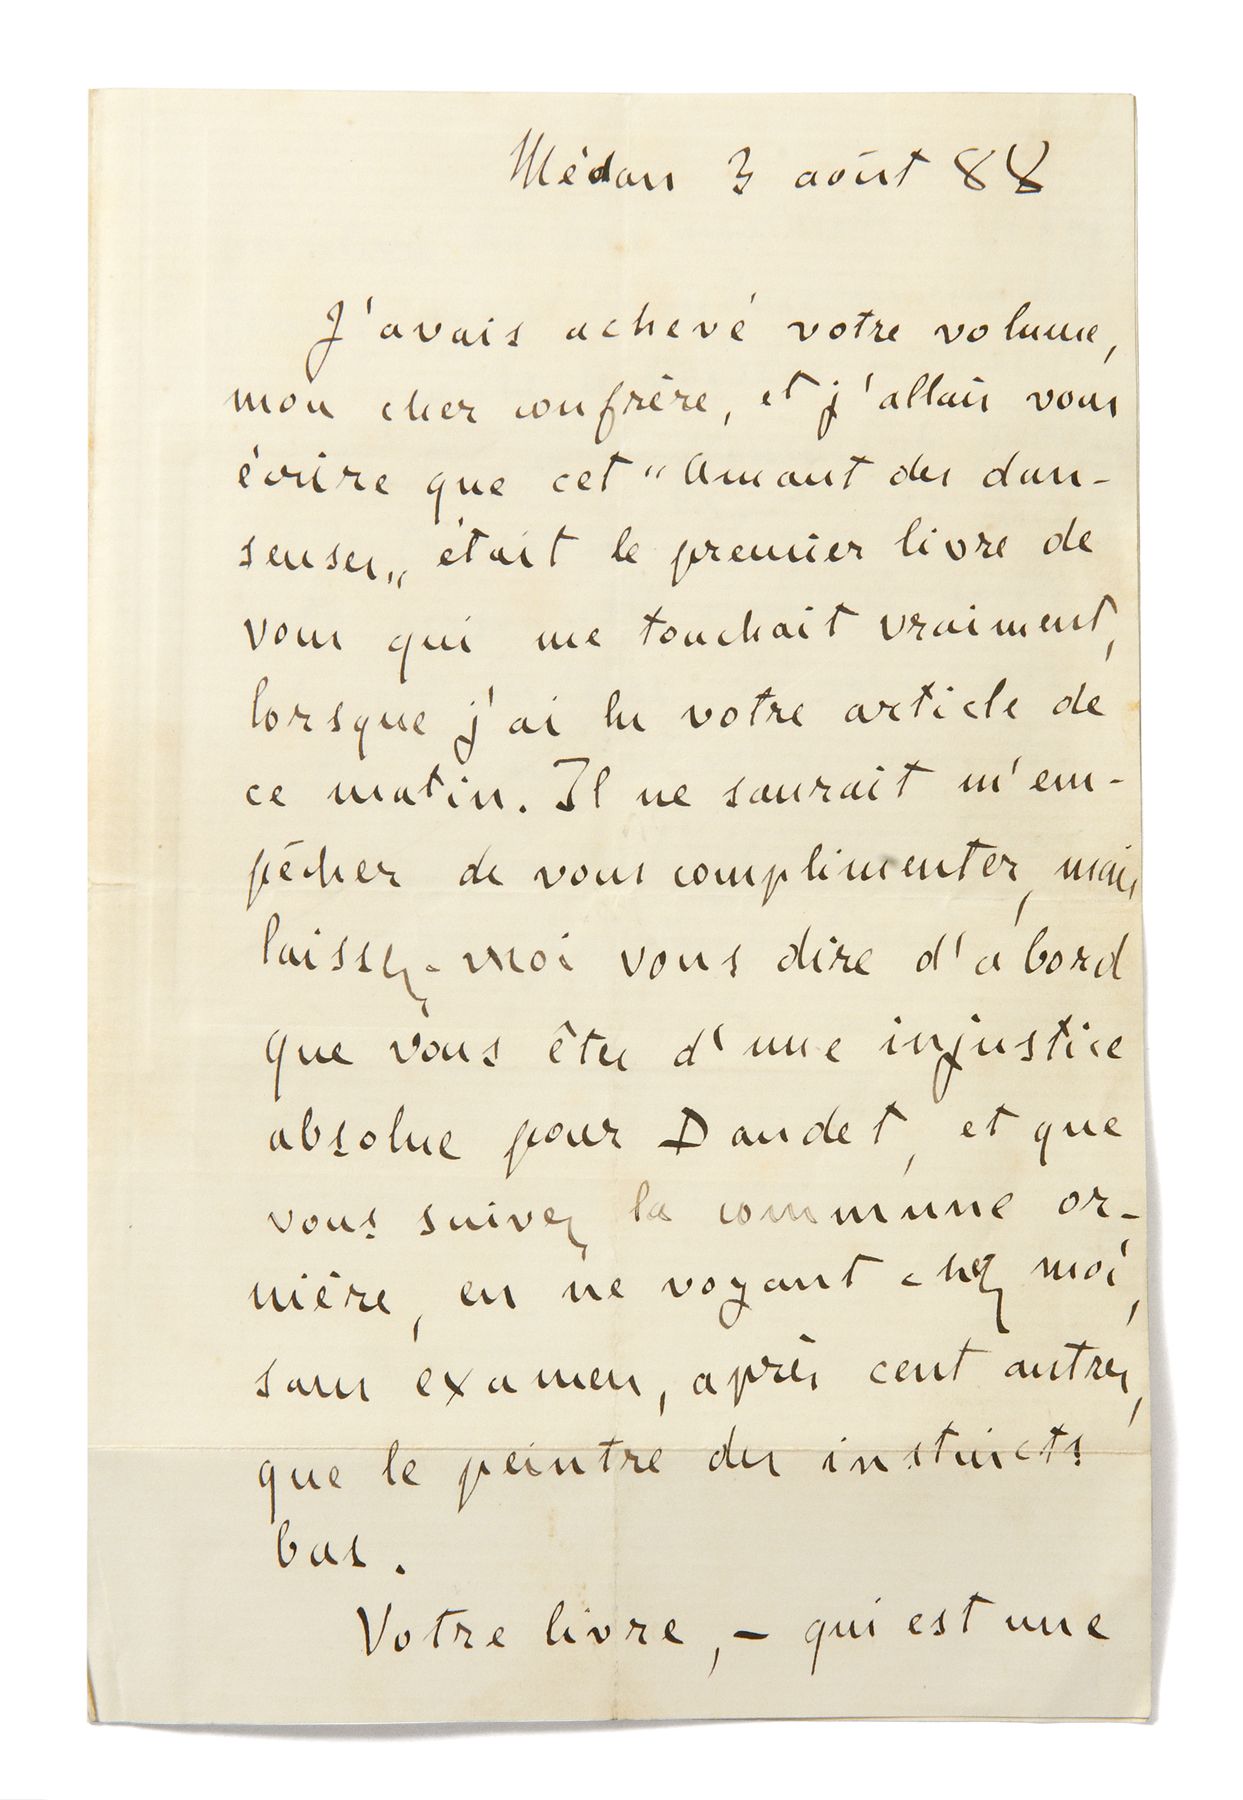 Médan 3 août 88
J'avais achevé votre volume,
mon cher confrère, et j'allais vous
écrire que cet "Amant des dan-
seuses" était le premier livre de
vous qui me touchait vraiment,
lorsque j'ai lu votre article de
ce matin. Il ne saurait m'em-
pêcher de vous complimenter, mais
laissez-moi vous dire d'abord
que vous êtes d'une injustice
absolue pour Daudet, et que
vous suivez la commune or-
nière, en ne voyant chez moi,
sans examen, après cent autres,
que le peintre des instincts
bas.
Votre livre, – qui est une